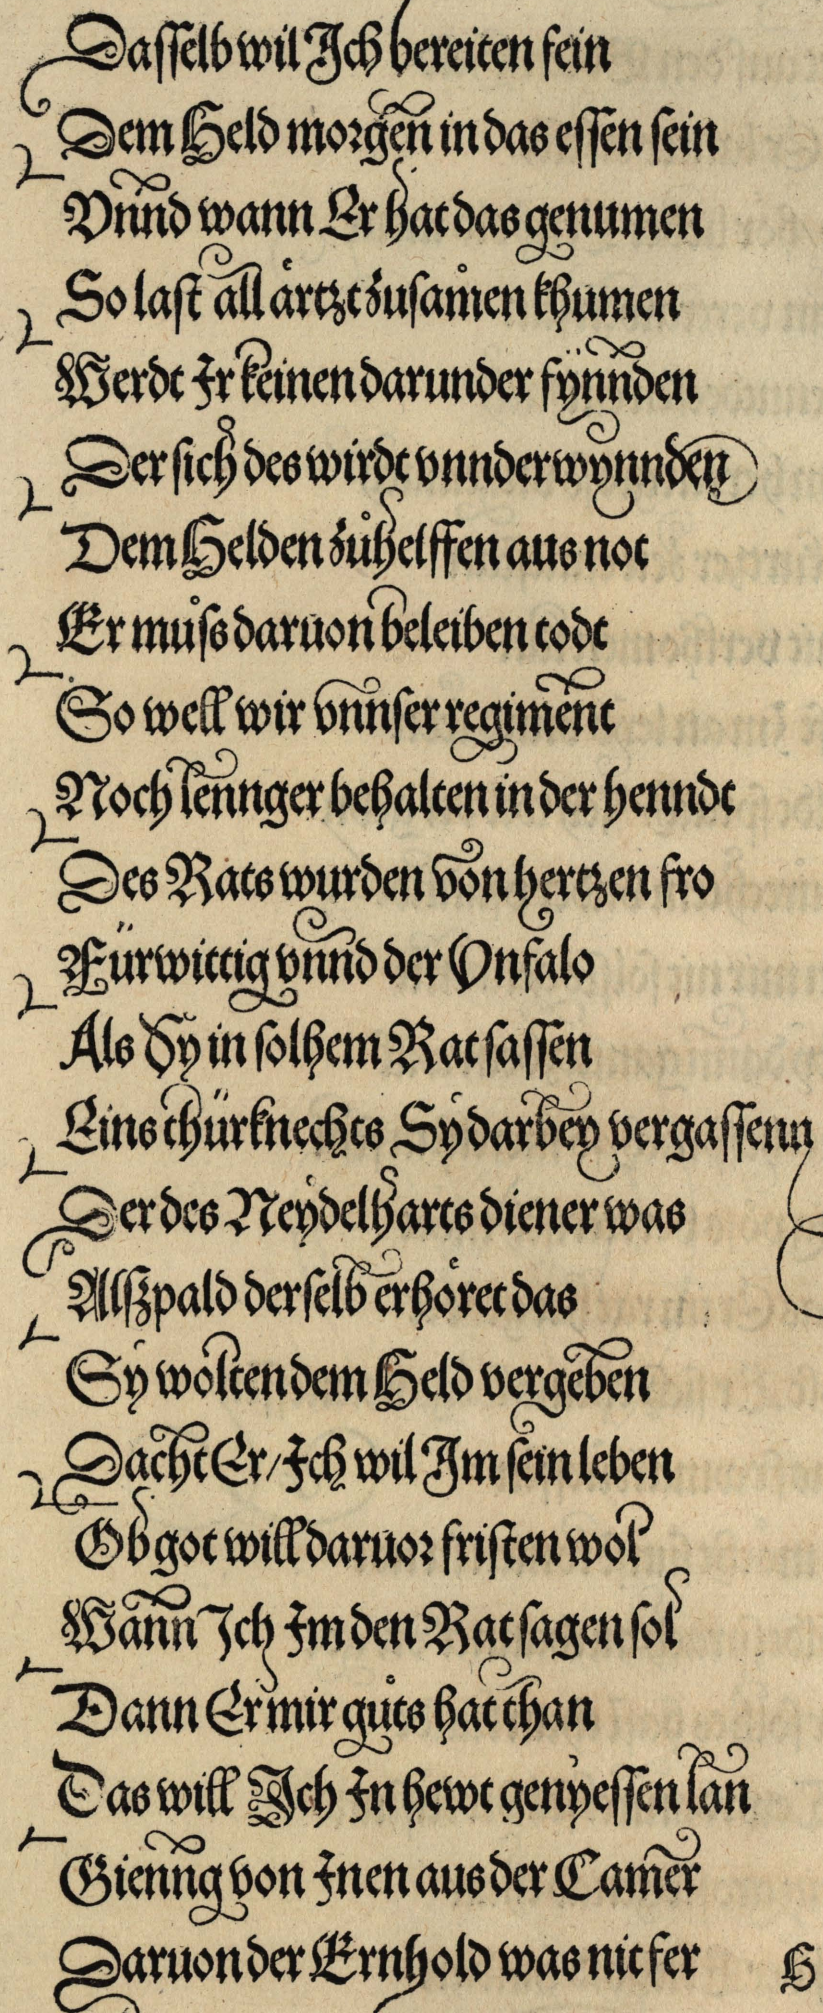 Dasselb wil Ich bereiten fein
Dem Held morgen in das essen sein
Vnnd wann Er hat das genumen
So last all ärtzt zusamen khumen
Werdt Ir keinen darunder fÿnnden
Der sich des wirdt vnnderwynnden
Dem Helden zůhelffen aus not
Er můss daruon beleiben todt
So well wir vnnser regiment
Noch lennger behalten in der henndt
Des Rats wurden von hertzen fro
Fürwittig vnnd der Vnfalo
Als Sy in solhem Rat sassen
Eins thürknechts Sÿ darbey vergassenn
Der des Neÿdelharts diener was
Alszpald derselb erhöret das
Sÿ wolten dem Held vergeben
Dacht Er/ Ich wil Im sein leben
Ob got will daruor fristen wol
Wann Ich Im den Rat sagen sol
Dann Er mir gůts hat than
Das will Ich In hewt genÿessen lan
Gienng von Inen aus der Camer
Daruon der Ernhold was nit fer H